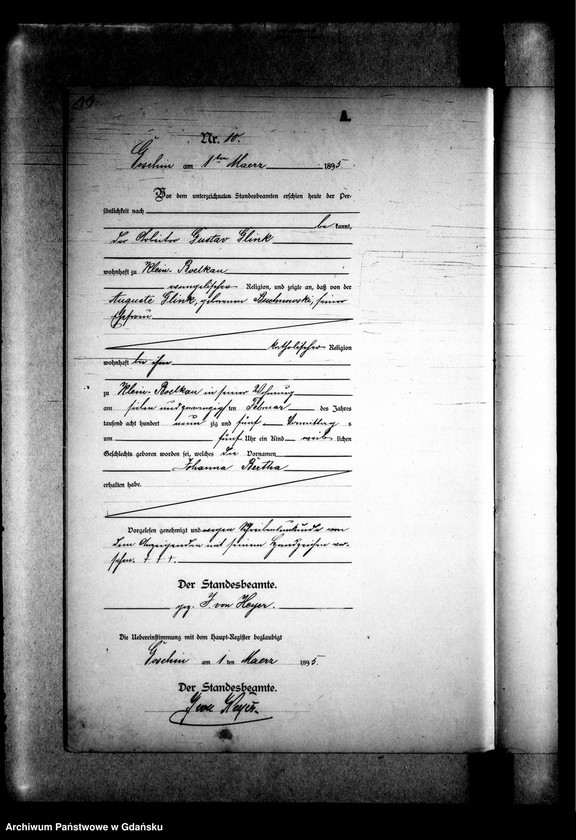 A.
Nr. 10.
Goschin am 1ten Maerz 1895
Vor dem unterzeichneten Standesbeamten erschien heute der Per-
sönlichkeit nach
be kannt,
der Arbeiter Gustav Glink
wohnhaft zu Klein-Boelkau
evangelischer Religion, und zeigte an, daß von der
Auguste Glink, geborenen seiner
Ehefrau
katholischer Religion
wohnhaft bei ihm
zu Klein-Boelkau in seiner Wohnung
am sieben und zwanzigsten Februar des Jahres
tausend acht hundert neun zig und fünf Vormittag s
um fünf Uhr ein Kind weib lichen
Geschlechts geboren worden sei, welches die Vornamen
Johanna Bertha
erhalten habe.
Vorgelesen genehmigt und wegen Schreibensunkunde von
dem Anzeigenden mit seinem Handzeichen ver-
sehen. + + +.
Der Standesbeamte.
gez. J. von Heyer.
Die Uebereinstimmung mit dem Haupt-Register beglaubigt
Goschin am 1 ten Maerz 1895.
Der Standesbeamte.
Heyer.
Archiwum Państwowe w Gdańsku